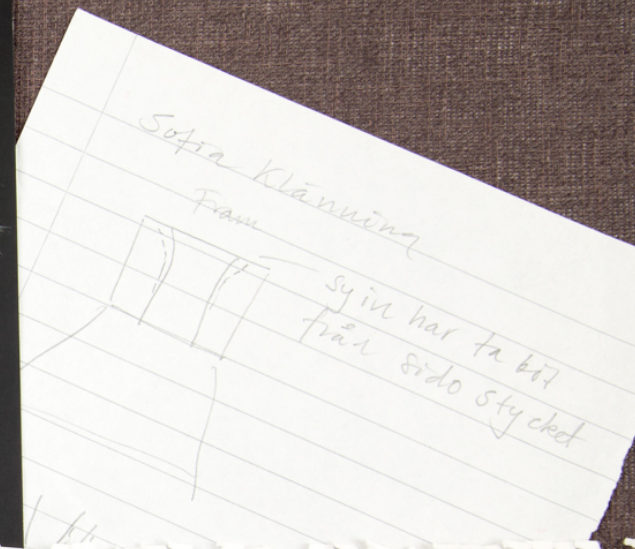 Sofia Klänning
Fram
sy in här ta bit
från sido stycket